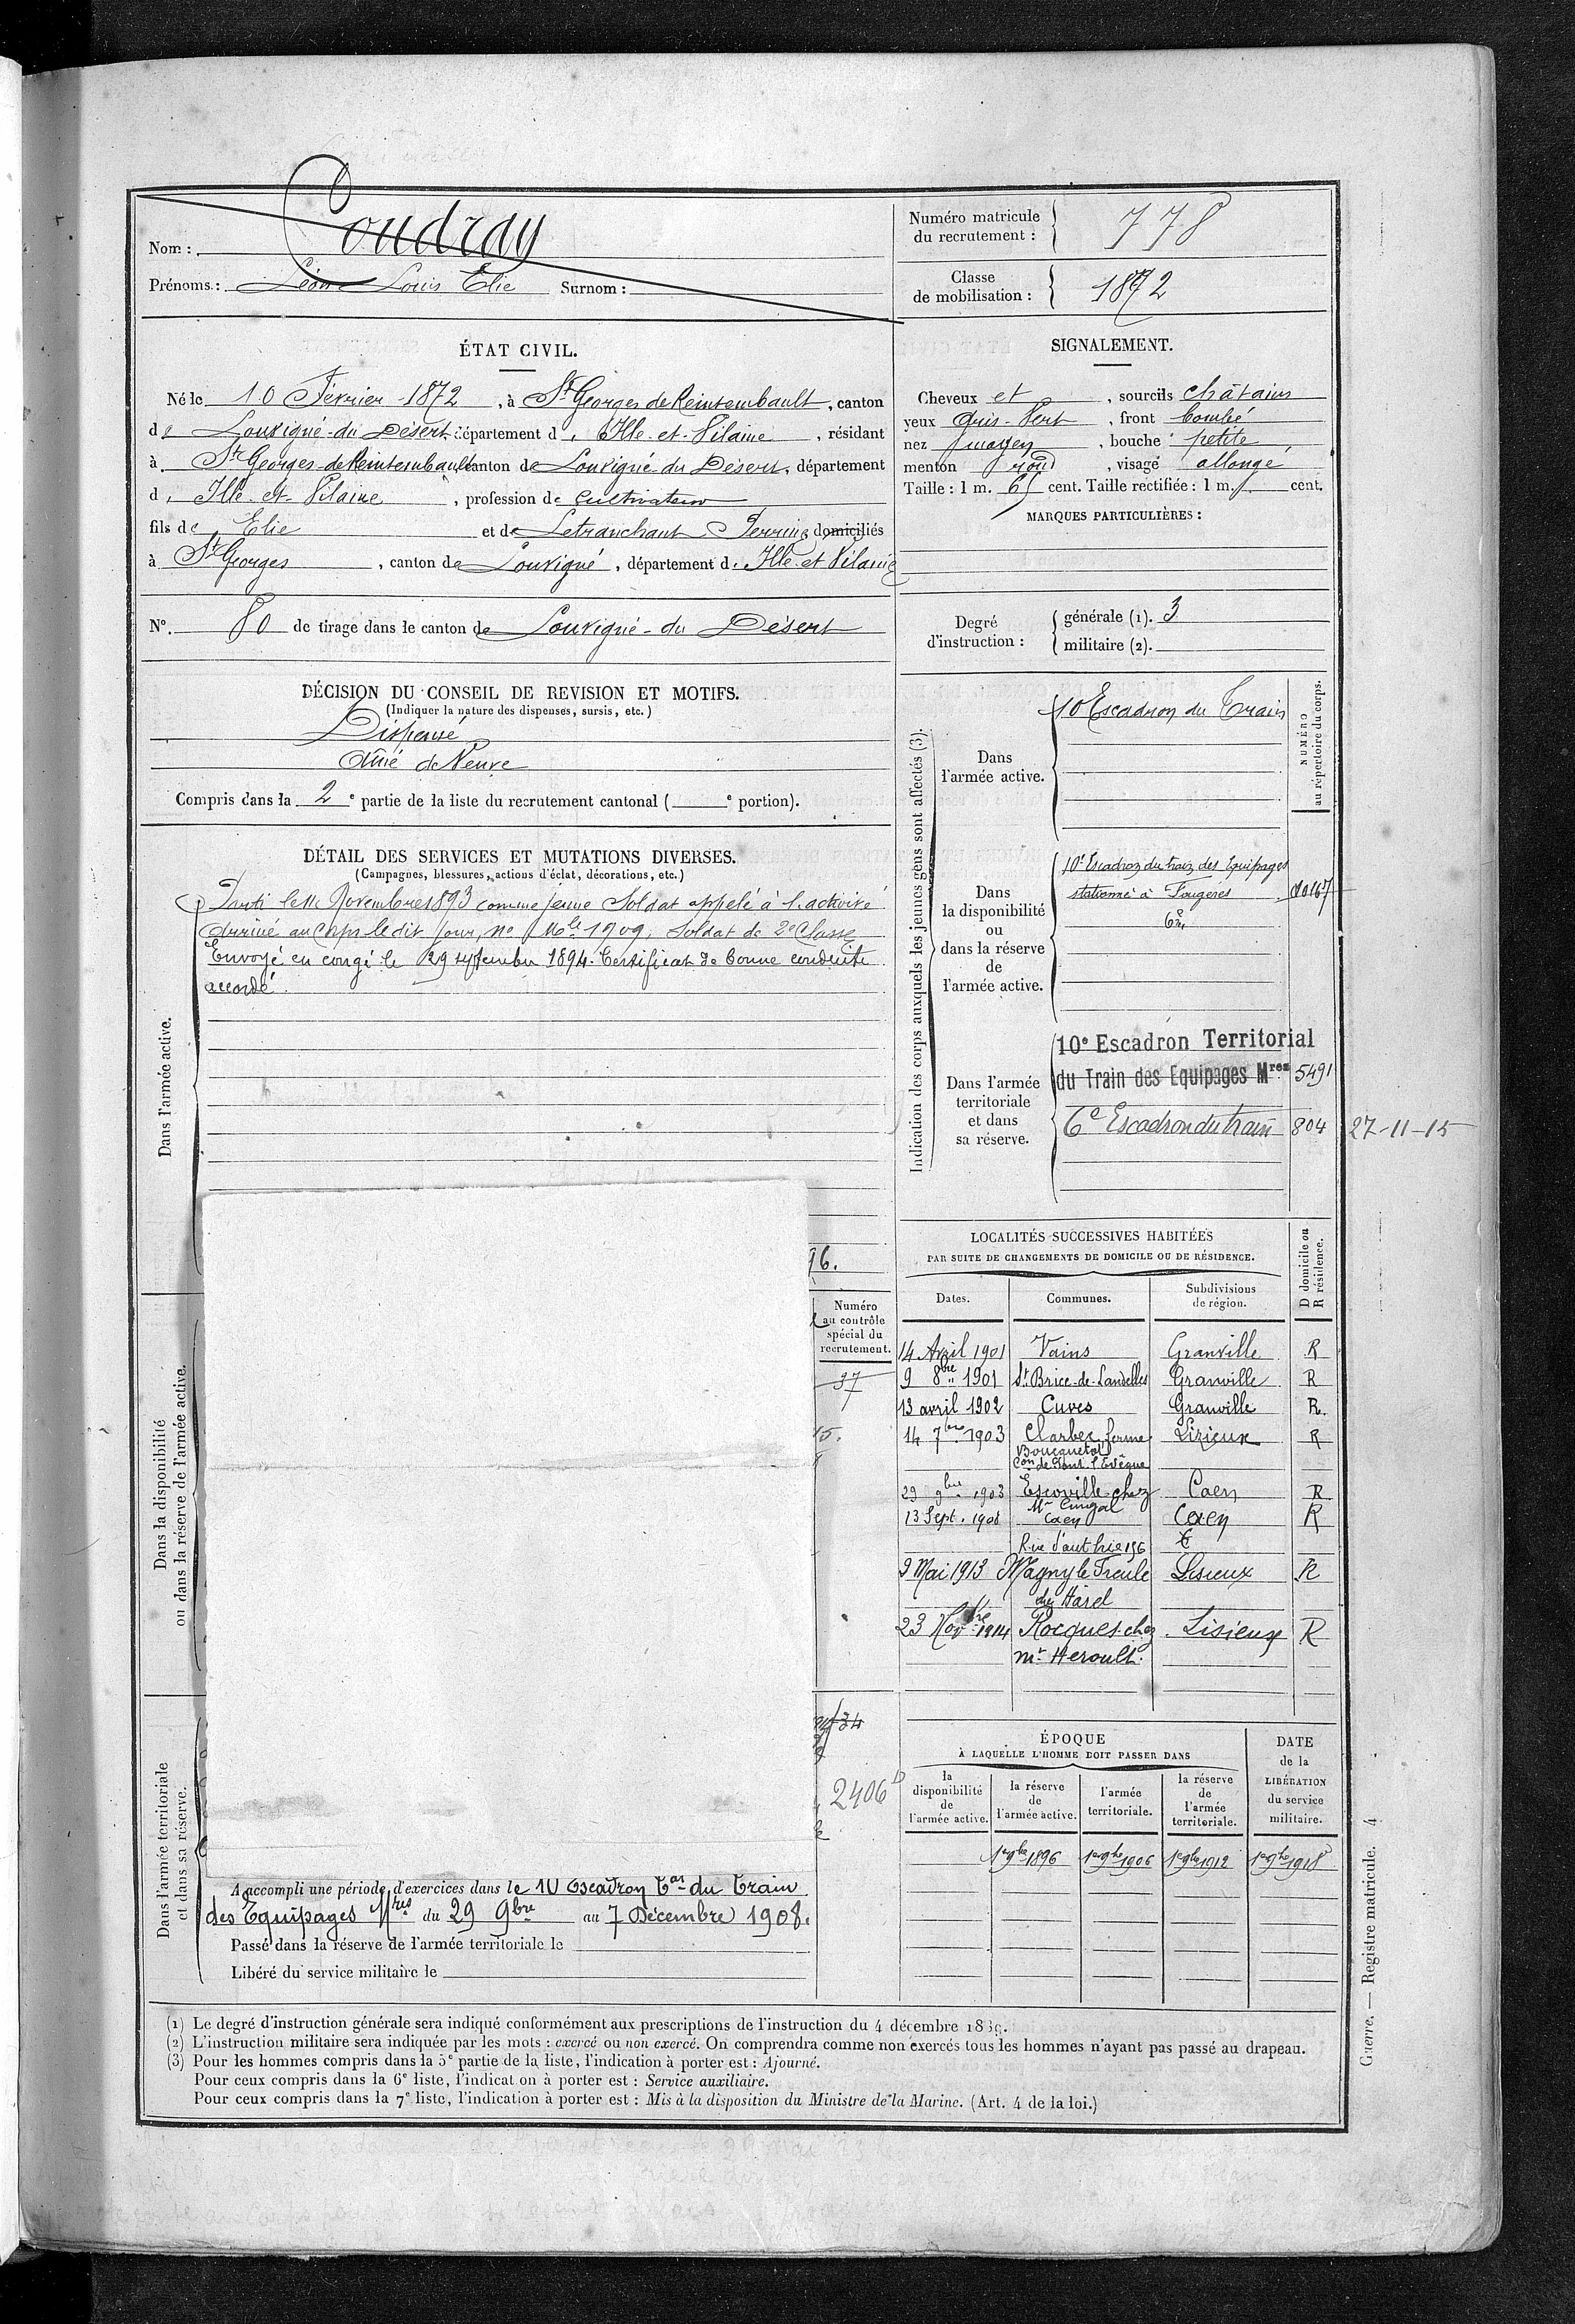 Nom : Coudray
Prénoms : Léon Louis Elie Surnom :
Numéro matricule du recrutement : 778
Classe de mobilisation : 1872
ÉTAT CIVIL.
Né le 10 Février 1872, à St Georges de Reintembault, canton
de Louvigné-du-Désert, département d'Ille-et-Vilaine, résidant
à St Georges-de-Reintembault canton de Louvigné du Désert, département
d'Ille-et-Vilaine, profession de cultivateur
fils de Elie et de Letranchant Perrine domiciliés
à St Georges, canton de Louvigné, département d'Ille et Vilaine
N° 80 de tirage dans le canton de Louvigné-du Désert
SIGNALEMENT.
Cheveux et , sourcils châtains
yeux gris-vert , front bombé
nez moyen , bouche petite
menton rond , visage allongé
Taille : 1 m. 65 cent. Taille rectifiée : 1 m. cent.
MARQUES PARTICULIÈRES :
Degré d'instruction :
générale (1). 3
militaire (2).
DÉCISION DU CONSEIL DE REVISION ET MOTIFS.
(Indiquer la nature des dispenses, sursis, etc.)
Dispensé
Aîné de Veuve
Compris dans la 2e partie de la liste du recrutement cantonal ( e portion).
DÉTAIL DES SERVICES ET MUTATIONS DIVERSES.
(Campagnes, blessures, actions d'éclat, décorations, etc.)
Dans l'armée active.
Parti le 11 Novembre 1893 comme jeune Soldat appelé à l'activité
Arrivé au Corps le dit jour, no Mle 1909, Soldat de 2e Classe
Envoyé en congé le 29 septembre 1894. Certificat de bonne conduite
accordé.
96.
Indication des corps auxquels les jeunes gens sont affectés (3).
NUMÉRO au répertoire du corps.
Dans l'armée active.
10 Escadron du Train
Dans la disponibilité ou dans la réserve de l'armée active.
10e Escadron du train des Equipages
stationné à Fougères
Dans l'armée territoriale et dans sa réserve.
10e Escadron Territorial
du Train des Equipages Mres 5491
6e Escadron du train 804 27-11-15
LOCALITÉS SUCCESSIVES HABITÉES
PAR SUITE DE CHANGEMENTS DE DOMICILE OU DE RÉSIDENCE.
Dates. Communes. Subdivisions de région. D domicile ou R résidence.
14 Avril 1901 Vains Granville R
9 8bre 1901 St Brice-de-Landelles Granville R
13 avril 1902 Cuves Granville R.
14 7bre 1903 Clarbec ferme Lizieux R
Con de Pont l'Evêque
29 9bre 1903 Escoville chez Caen R
Mr Cingal
13 Sept. 1908 Caen Caen R
Rue d'authie 156
9 Mai 1913 Magny le Freule Lisieux R
chez Harel
23 Novbre 1914 Rocques chez Lisieux R
mr Heroult.
Dans la disponibilité ou dans la réserve de l'armée active.
Numéro au contrôle spécial du recrutement.
37
15.
Dans l'armée territoriale et dans sa réserve.
34
2406
A accompli une période d'exercices dans le 10 Escadron Tal du Train
des Equipages Mres du 29 9bre au 7 Décembre 1908.
Passé dans la réserve de l'armée territoriale le
Libéré du service militaire le
ÉPOQUE
À LAQUELLE L'HOMME DOIT PASSER DANS
la disponibilité de l'armée active.
la réserve de l'armée active.
l'armée territoriale.
la réserve de l'armée territoriale.
DATE de la LIBÉRATION du service militaire.
1er 9bre 1896 1er 9bre 1906 1er 9bre 1912 1er 9bre 1918
(1) Le degré d'instruction générale sera indiqué conformément aux prescriptions de l'instruction du 4 décembre 1889.
(2) L'instruction militaire sera indiquée par les mots : exercé ou non exercé. On comprendra comme non exercés tous les hommes n'ayant pas passé au drapeau.
(3) Pour les hommes compris dans la 5e partie de la liste, l'indication à porter est : Ajourné.
Pour ceux compris dans la 6e liste, l'indication à porter est : Service auxiliaire.
Pour ceux compris dans la 7e liste, l'indication à porter est : Mis à la disposition du Ministre de la Marine. (Art. 4 de la loi.)
Guerre. — Registre matricule. 4